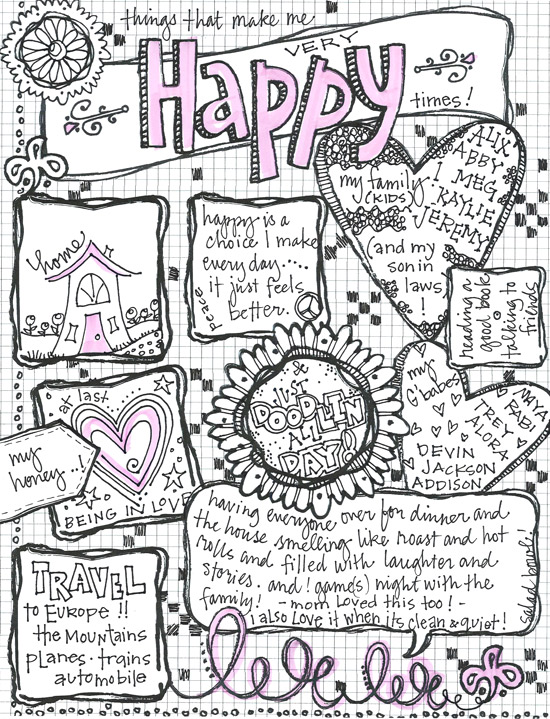 things that make me
VERY
Happy
times!
my family
(KIDS)
ALIX
ABBY
MEG
KAYLIE
JEREMY
(and my
son in
laws
!
home
happy is a
choice I make
every day.....
it just feels
better.
peace
reading a
good book
talking to
friends
& JUST
DOODLIN
ALL
DAY!
my
G'babes
TREY
ALORA
DEVIN
JACKSON
ADDISON
at last
my
honey..!
BEING IN LOVE
having everyone over for dinner and
the house smelling like roast and hot
rolls and filled with laughter and
stories. and! game(s) night with the
family! - mom loved this too! -
i also Love it when its clean & quiet!
salad bowl!
TRAVEL
to Europe!!
the Mountains
planes. trains
automobile